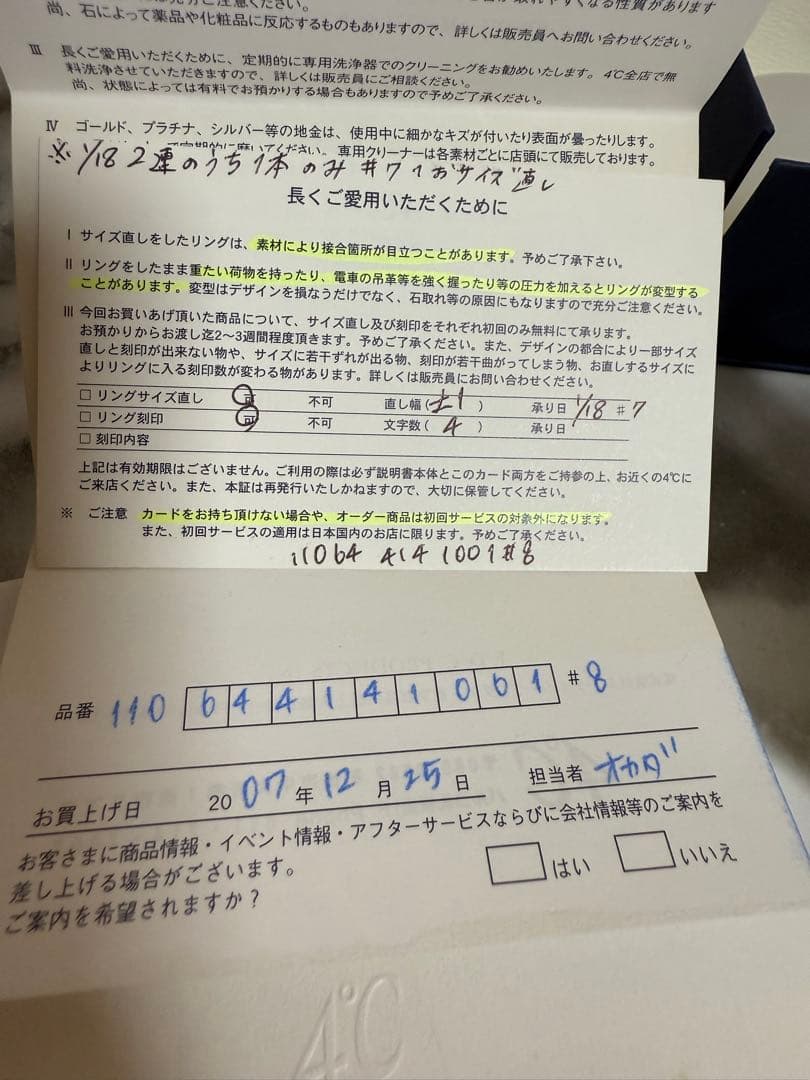 尚、石によって薬品や化粧品に反応するものもありますので、詳しくは販売員へお問い合わせください。
Ⅲ 長くご愛用いただくために、定期的に専用洗浄器でのクリーニングをお勧めいたします。4℃全店で無
料洗浄させていただきますので、詳しくは販売員にご相談ください。
尚、状態によっては有料でお預かりする場合もありますので予めご了承ください。
Ⅳ ゴールド、プラチナ、シルバー等の地金は、使用中に細かなキズが付いたり表面が曇ったりします。
専用クリーナーは各素材ごとに店頭にて販売しております。
※ 1/18 2連のうち1本のみ #7 1おサイズ直し
長くご愛用いただくために
Ⅰ サイズ直しをしたリングは、素材により接合箇所が目立つことがあります。予めご了承下さい。
Ⅱ リングをしたまま重たい荷物を持ったり、電車の吊革等を強く握ったり等の圧力を加えるとリングが変型する
ことがあります。変型はデザインを損なうだけでなく、石取れ等の原因にもなりますので充分ご注意ください。
Ⅲ 今回お買いあげ頂いた商品について、サイズ直し及び刻印をそれぞれ初回のみ無料にて承ります。
お預かりからお渡し迄2〜3週間程度頂きます。予めご了承ください。また、デザインの都合により一部サイズ
直しと刻印が出来ない物や、サイズに若干ずれが出る物、刻印が若干曲がってしまう物、お直しするサイズに
よりリングに入る刻印数が変わる物があります。詳しくは販売員にお問い合わせください。
□ リングサイズ直し 可 不可 直し幅(±1) 承り日 1/18 #7
□ リング刻印 可 不可 文字数(4) 承り日
□ 刻印内容
上記は有効期限はございません。ご利用の際は必ず説明書本体とこのカード両方をご持参の上、お近くの4℃に
ご来店ください。また、本証は再発行いたしかねますので、大切に保管してください。
※ ご注意 カードをお持ち頂けない場合や、オーダー商品は初回サービスの対象外になります。
また、初回サービスの適用は日本国内のお店に限ります。予めご了承ください。
11064 414 1001#8
品番 110 6441410 61 #8
お買上げ日 2007年12月25日 担当者 オカダ
お客さまに商品情報・イベント情報・アフターサービスならびに会社情報等のご案内を
差し上げる場合がございます。
ご案内を希望されますか? □はい □いいえ
4℃